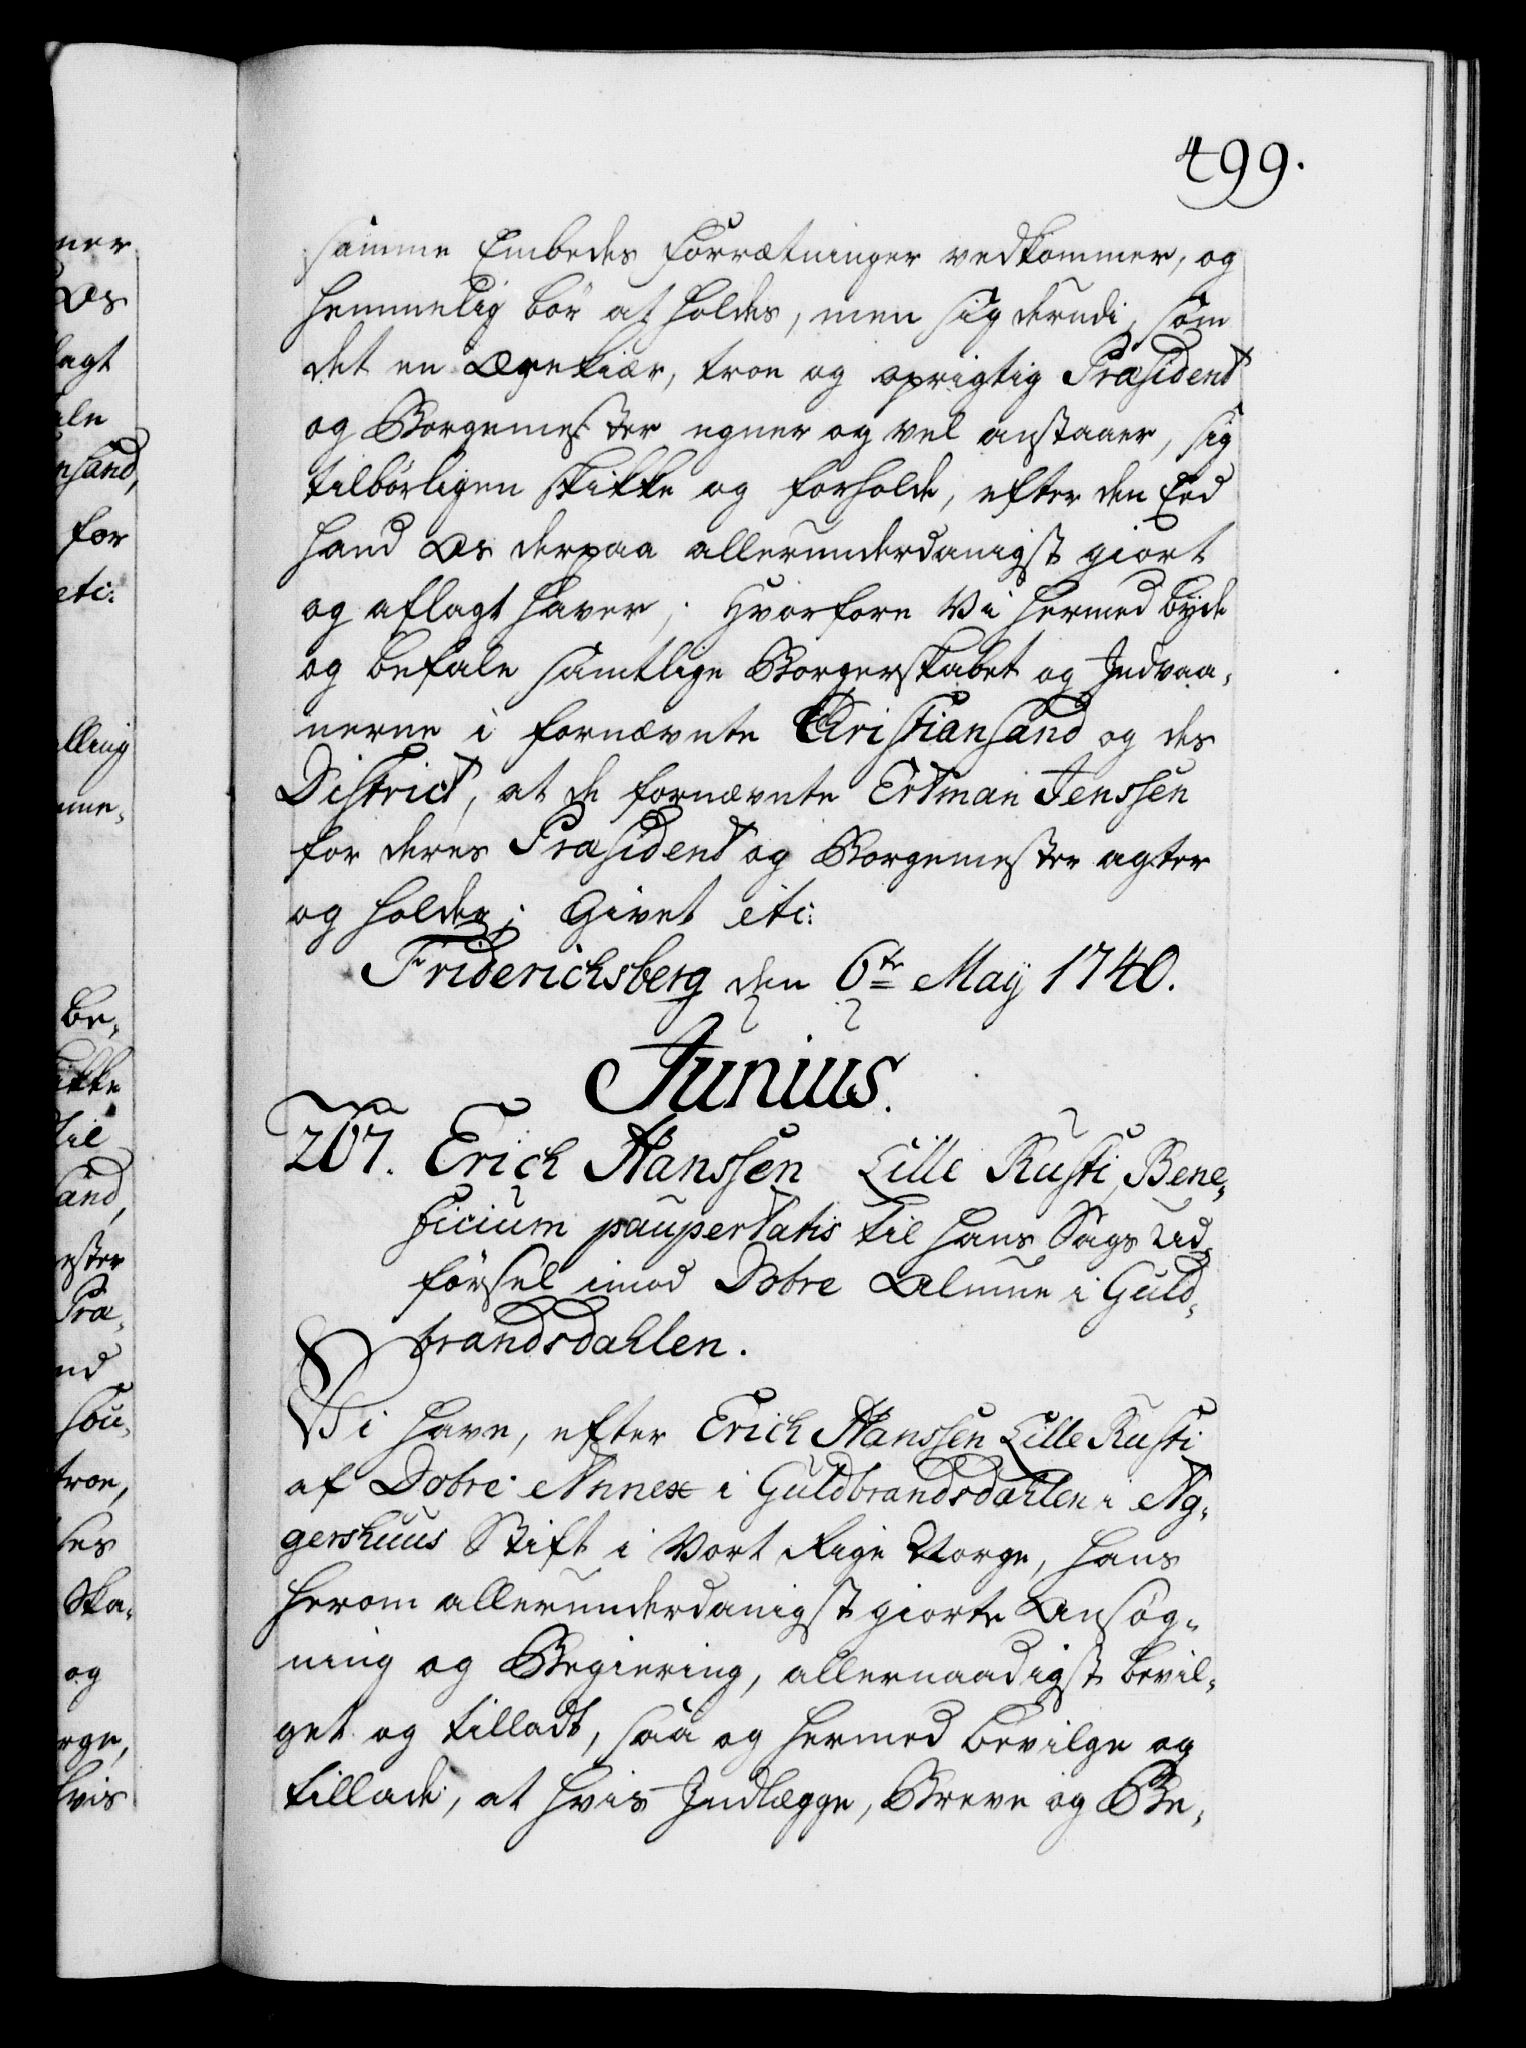 499.
samme Embedes Forrætninger vedkommer, og
hemmelig bör at holdes, men sig derudi, som
det en Ærekiær, troe og oprigtig Præsident
og Borgemester egner og vel anstaaer, sig
tilbörligen skikke og forholde, efter den Eed
hand Os derpaa allerunderdanigst giort
og aflagt haver; Hvorfore Vi hermed byde
og befale samtlige Borgerskabet og Indvaa-
nerne i fornævnte Christiansand og des
District, at de fornævnte Ertman Jenssen
for deres Præsident og Borgemester agter
og holder; Givet etc:
Friderichsberg den 6te May 1740.
Junius.
207. Erich Hanssen Lille Rusti, Bene-
ficium paupertatis til hans Sags Ud-
försel imod Dobre Almue i Guld-
brandsdahlen.
Vi have, efter Erich Hanssen Lille Rusti
af Dobre Annex i Guldbrandsdahlen i Ag-
gershuus Stift i Vort Rige Norge, hans
herom allerunderdanigst giorte Ansög-
ning og Begiering, allernaadigst bevil-
get og tilladt, saa og hermed bevilge og
tillade, at hvis Indlægge, Breve og Be-
ner
Os
lagt
ale
nsand,
for
etc:
lling
mme-
be-
ikke
til
sand,
ester
Præ-
nd
sou-
troe,
hes
Ska-
og
rge,
hvis